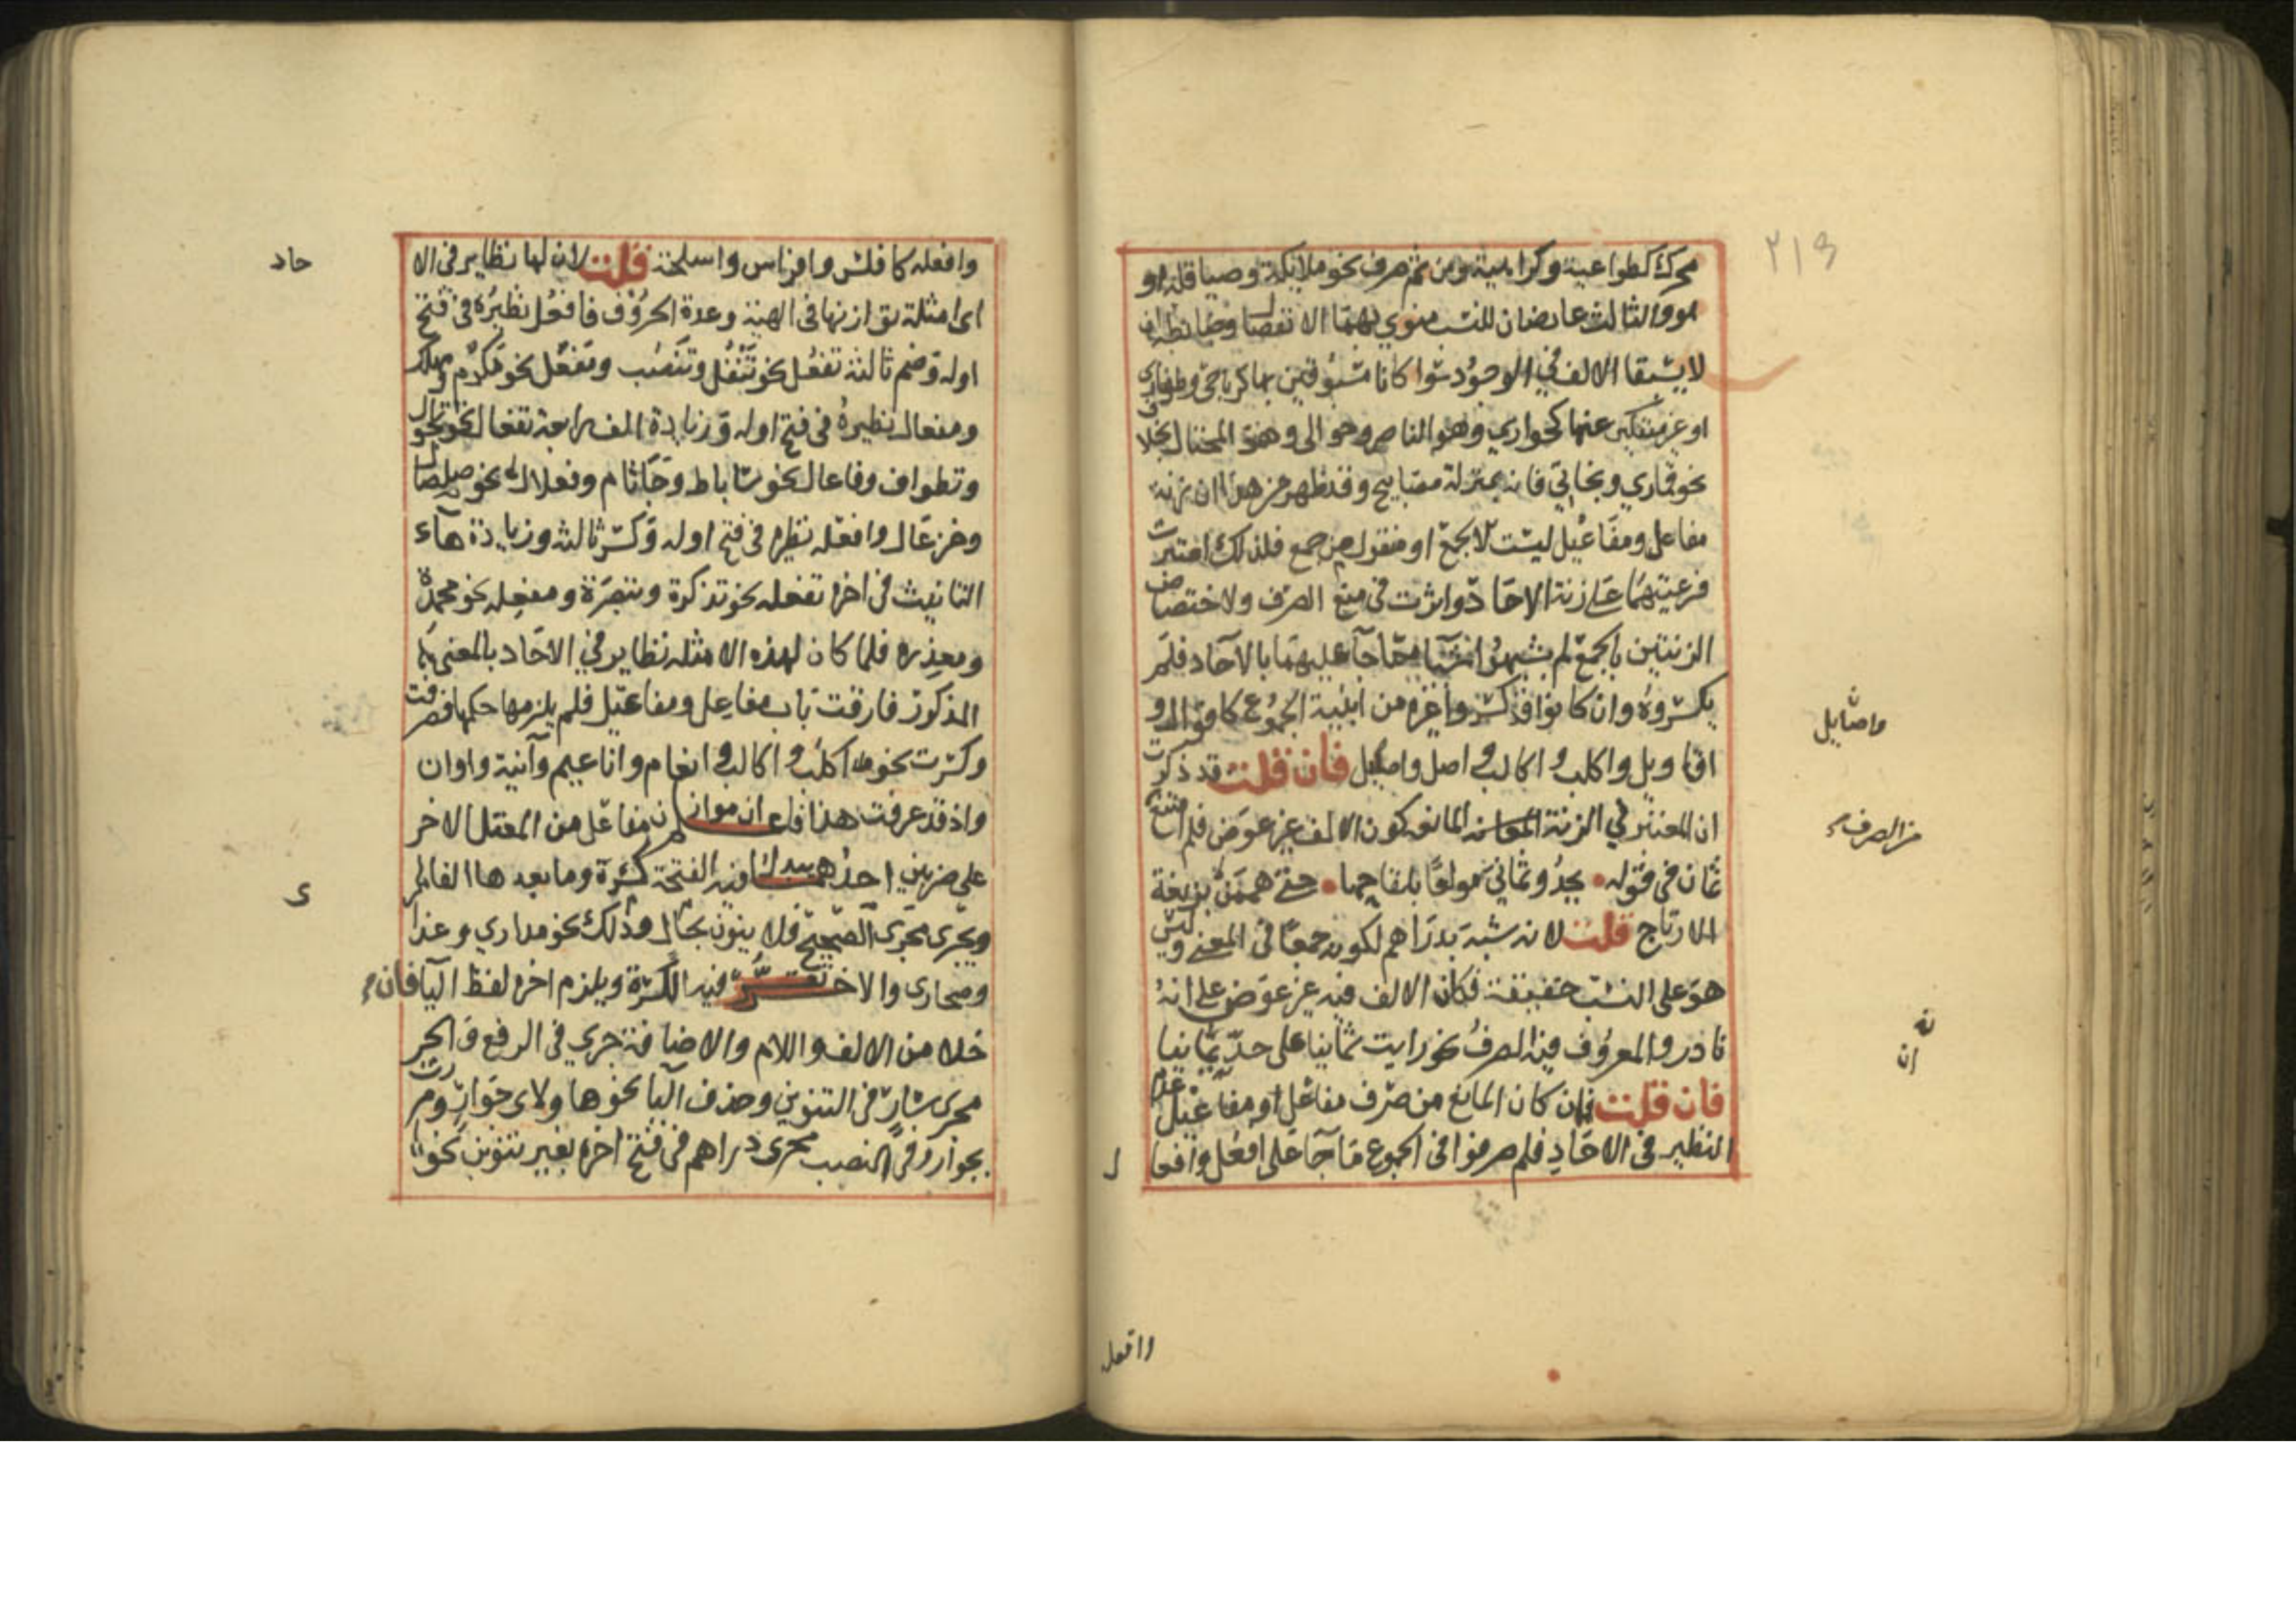 ٢١٩
محرك كطواعية وكراهية ومن ثم صرف نحو ملايكة وصياقلة او
هو والثالث عارضان للنسب منوي بهما الانفصال وضابطه ان
لا يسبقا الالف في الوجود سوا كانا مسبوقين بها كرباحي وظفاري
او غير منفكين عنها كحواري وهو الناصر وحوالى وهو المحتال بخلاف
نحو قماري وبخاتي فانه بمنزلة مصابيح وقد ظهر من هذا ان زنة
مفاعل ومفاعيل ليست الا لجمع او منقول من جمع فلذلك اعتبرت
فرعيتهما على زنة الاحاد واثرت في منع الصرف ولاختصاص
الزنتين بالجمع لم يشبهوا شيا مما جا عليهما بالاحاد فلم
يكسروه وان كانوا قد كسروا غيره من ابنية الجموع كاقوال و
اقاويل واكلب و اكالب و اصل واصايل فان قلت قد ذكرت
واصايل
ان المعتبر في الزنة المانعه كون الالف غير عوض فلم منع
من الصرف
ثمان في قوله • يحدو ثماني مولعا بلقاحها • حتى هممن بزيغة
الارتاج قلت لانه شبه بدراهم لكونه جمعا في المعنى وليس
هو على النسب حقيقة فكان الالف فيه غير عوض على انه
نادر والمعروف فيه الصرف نحو رايت ثمانيا على حد يمانيا
فان قلت فان كان المانع من صرف مفاعل او مفاعيل عدم
النظير في الاحاد فلم صرفوا في الجموع ما جا على افعل وافعال
وافعله
وافعله كافلس وافراس واسلحة قلت لان لها نظاير في الا
حاد
اى امثلة توازنها في الهيئة وعدة الحروف فافعل نظيره في فتح
اوله وضم ثالثه تفعل نحو تتفل وتنضب ومفعل نحو مكرم ومهلك
ومفعال نظيره في فتح اوله وزيادة الف رابعة تفعال نحو تجوال
وتطواف وفاعال نحو ساباط وخاتام وفعلال نحو صلصال
وخزعال وافعله نظيره في فتح اوله وكسر ثالثه وزيادة هاء
التانيث في اخره تفعله نحو تذكرة وتبصرة ومفعله نحو محمدة
ومعذره فلما كان لهذه الامثله نظاير في الاحاد بالمعنى
المذكور فارقت باب مفاعل ومفاعيل فلم يلزمها حكمها فصرفت
وكسرت نحو اكلب و اكالب و انعام واناعيم وآنية واوان
واذ قد عرفت هذا فاعلم ان موازن مفاعل من المعتل الاخر
على ضربين احدهما يبدل فيه الفتحة كسرة وما بعدها الفا
ى
ويجرى مجرى الصحيح فلا ينون بحال وذلك نحو مداري وعذا
وصحارى والاخر تقر فيه الكسرة ويلزم اخره لفظ اليا فان
خلا من الالف واللام والاضافة جرى في الرفع والجر
مجرى سار في التنوين وحذف اليا نحو هاولاى جوار ومررت
بجوار وفي النصب مجرى دراهم في فتح اخره بغير تنوين نحو